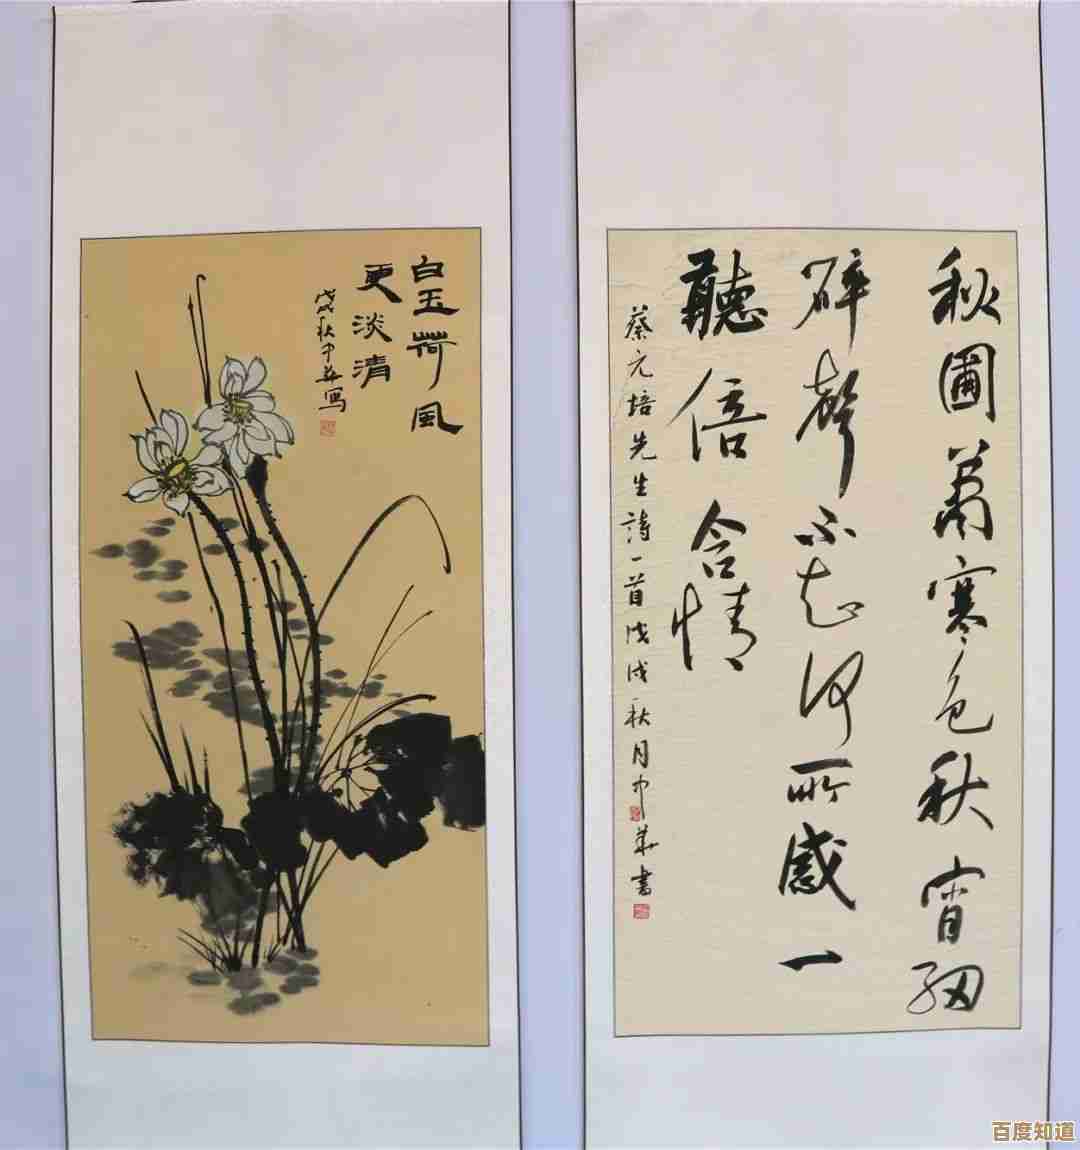 白玉荷風
更淡清
戊秋中華寫
秋圃蕭寒色秋宵細
碎聲不知何所感一
聽倍含情
蔡元培先生詩一首戊戌秋月中華書
百度知道